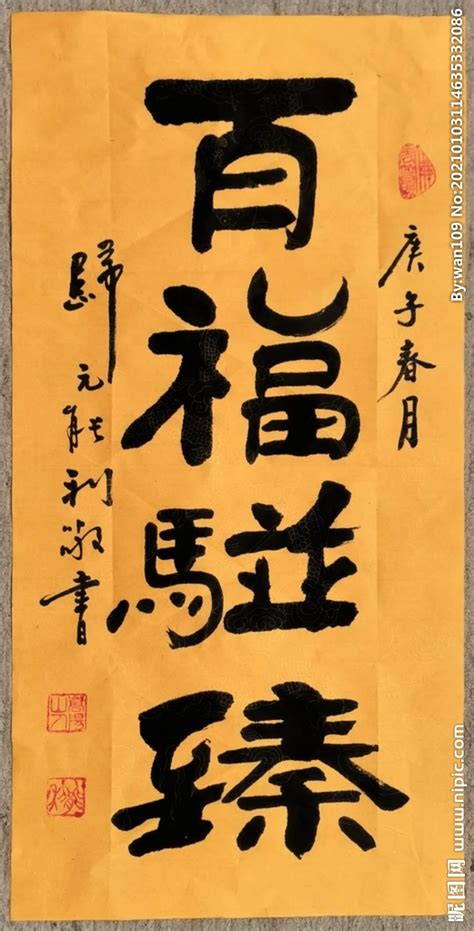 庚子春月
百福駢臻
歸元能利敬書
By:wan109 No:20210103114635332086
昵图网 www.nipic.com